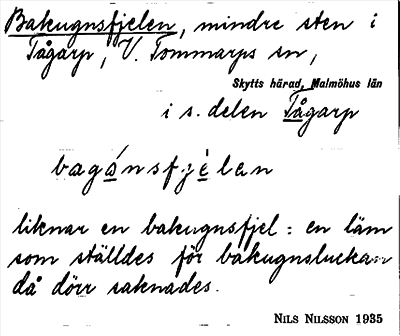 Bakugnsfjelen, mindre sten i
Tågarp, V. Tommarps sn,
Skytts härad, Malmöhus län
i s. delen Tågarp
bagånsfjèlan
liknar en bakugnsfjel: en läm
som ställdes för bakugnsluckan
då dörr saknades.
NILS NILSSON 1935